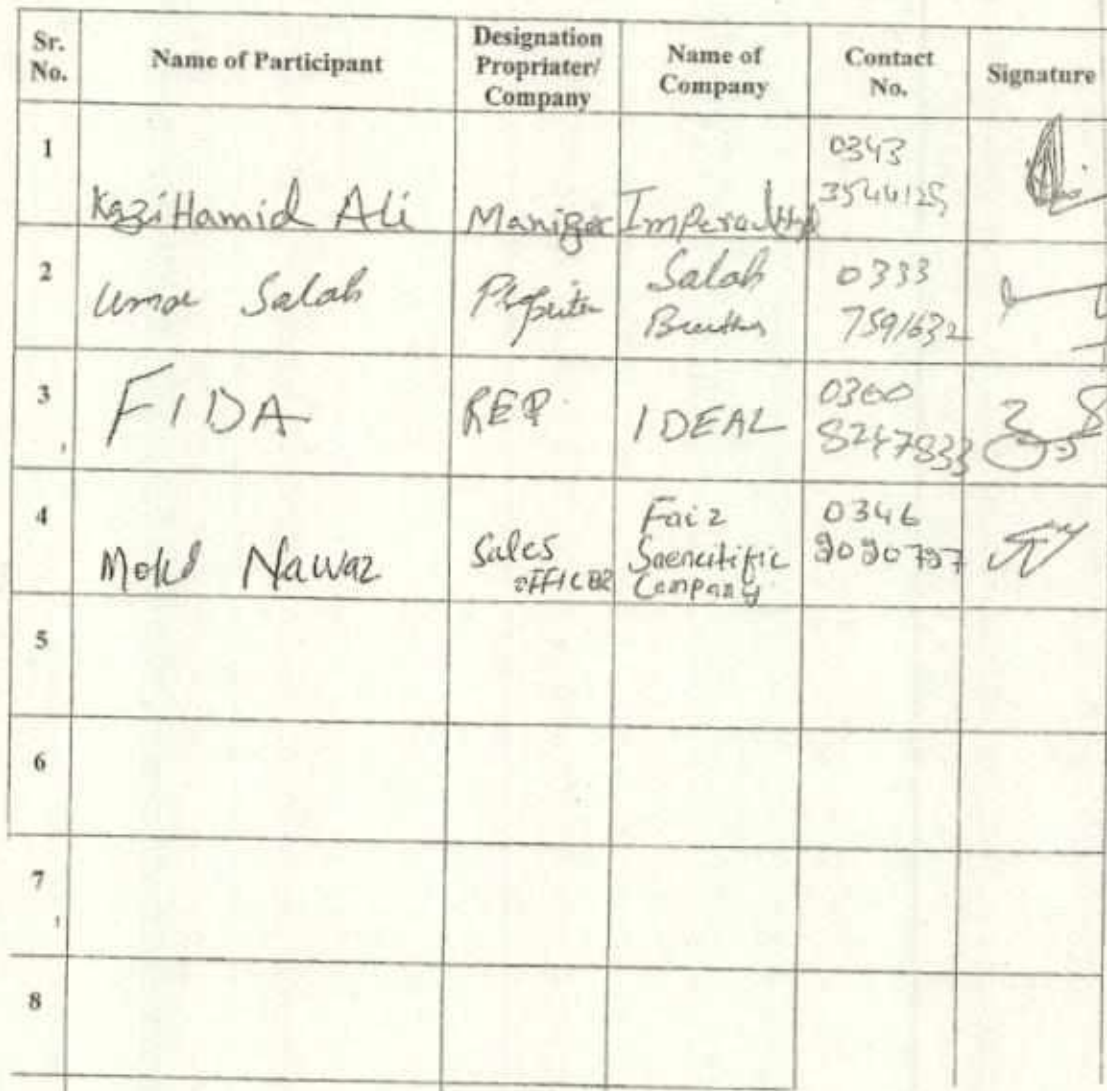 Sr. No.
Name of Participant
Designation Propriater/ Company
Name of Company
Contact No.
Signature
1
Kazi Hamid Ali
Maniger
0343
2
Salah
Salah
0333
7591632
3
FIDA
REP
IDEAL
0300
8247833
4
Mohd Nawaz
Sales
OFFICER
Faiz
Company
0346
9090797
5
6
7
8